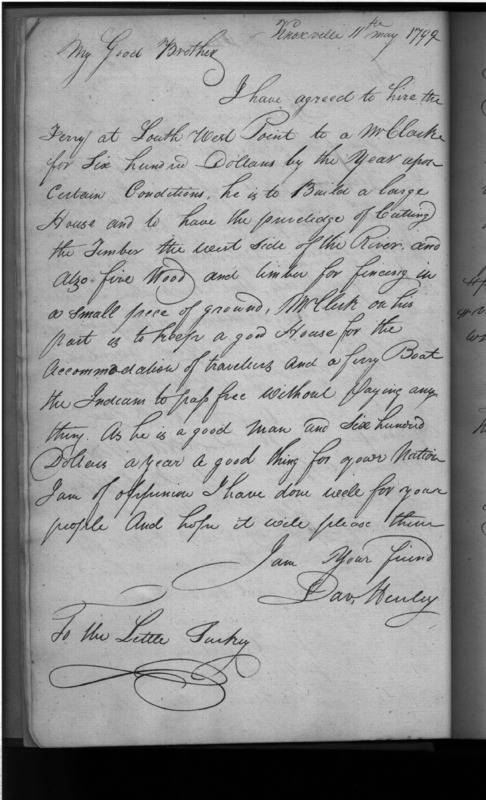 Knoxville 11th may 1799
My Good Brother
I have agreed to hire the
Ferry at South West Point to a Mr Clark
for Six hundred Dollars by the Year upon
Certain Conditions, he is to Build a large
House and to have the priviledge of Cutting
the Timber the west Side of the River, and
Also fire Wood and timber for fencing in
a small piece of ground, Mr Clark on his
part is to keep a good House for the
Accommodation of travelers And a ferry Boat
the Indians to pass free Without Paying any
thing. As he is a good man and Six hundred
Dollars a year a good thing for your Nation
I am of oppinion I have done well for your
people And hope it will please them
I am Your friend
Dav. Henley
To the Little Turkey